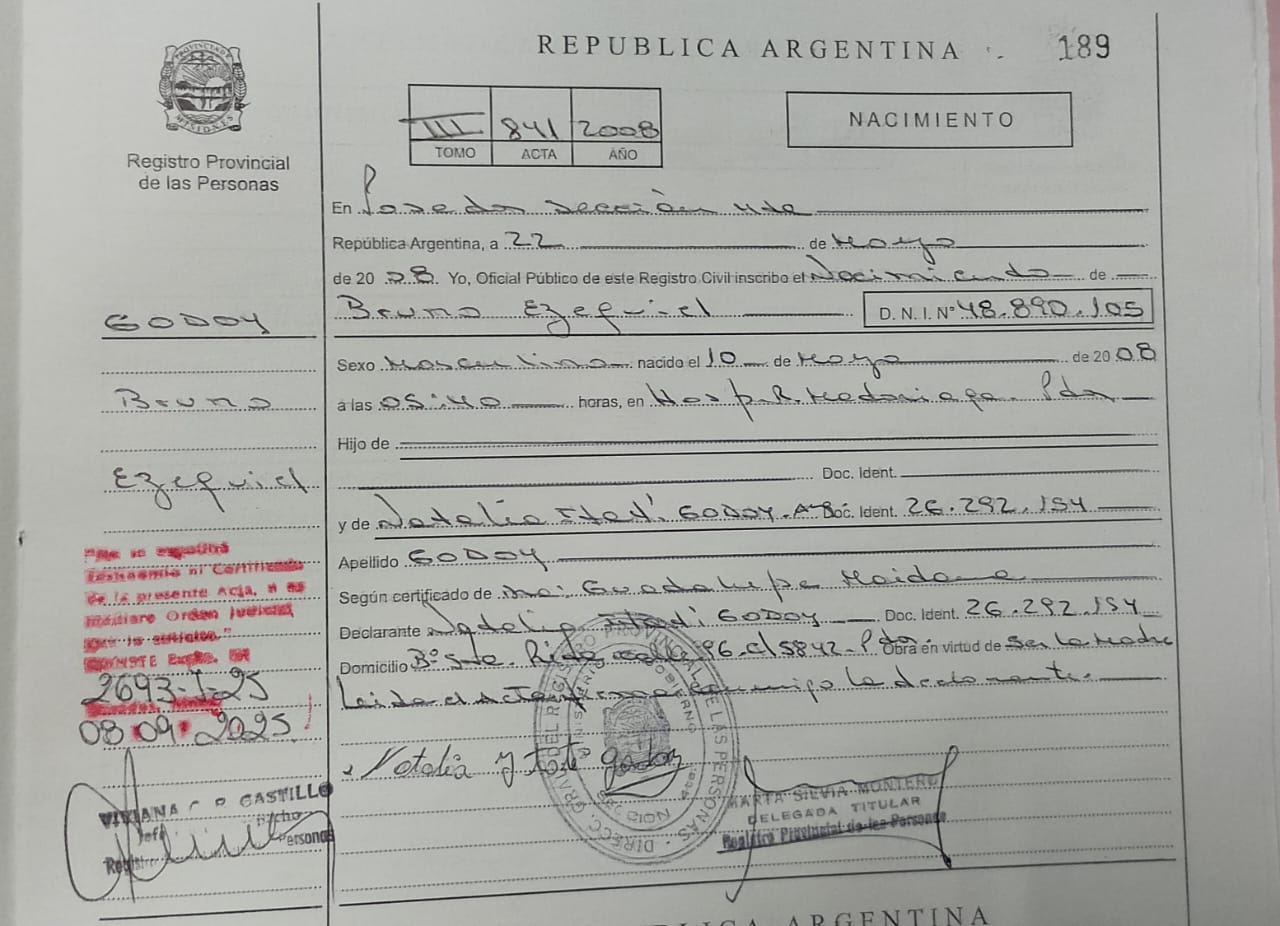 REPUBLICA ARGENTINA
189
PROVINCIA DE MISIONES
Registro Provincial
de las Personas
III 841 2008
TOMO ACTA AÑO
NACIMIENTO
En Posadas sección
República Argentina, a 22 de Mayo
de 2008. Yo, Oficial Público de este Registro Civil inscribo el Nacimiento de
Bruno Ezequiel D.N.I. Nº 48.890.105
GODOY
Bruno
Ezequiel
Sexo Masculino nacido el 10 de Mayo de 2008
a las 05:40 horas, en Hosp. R. Madariaga. Pdas
Hijo de
Doc. Ident.
y de Natalia Itatí GODOY. Doc. Ident. 26.292.154
Apellido GODOY
Según certificado de Guadalupe Maidana
Declarante Natalia Itatí GODOY Doc. Ident. 26.292.154
Domicilio Bº calle 96 c/5842 - Pdas Obra en virtud de Ser la Madre
Leida el Acta firma conmigo la declarante.
"No se expedirá
testimonio ni Certificado
de la presente Acta, si no
mediare Orden Judicial
que lo solicite."
CONSTE Expte. Nº
2693-I-25
08 09 2025
Natalia Y Godoy
DIRECC. GRAL. DEL REGISTRO PROVINCIAL DE LAS PERSONAS
VIVIANA CASTILLO
Jefe
Registro Personas
MARTA SILVIA MONTERO
DELEGADA TITULAR
Registro Provincial de las Personas
REPUBLICA ARGENTINA